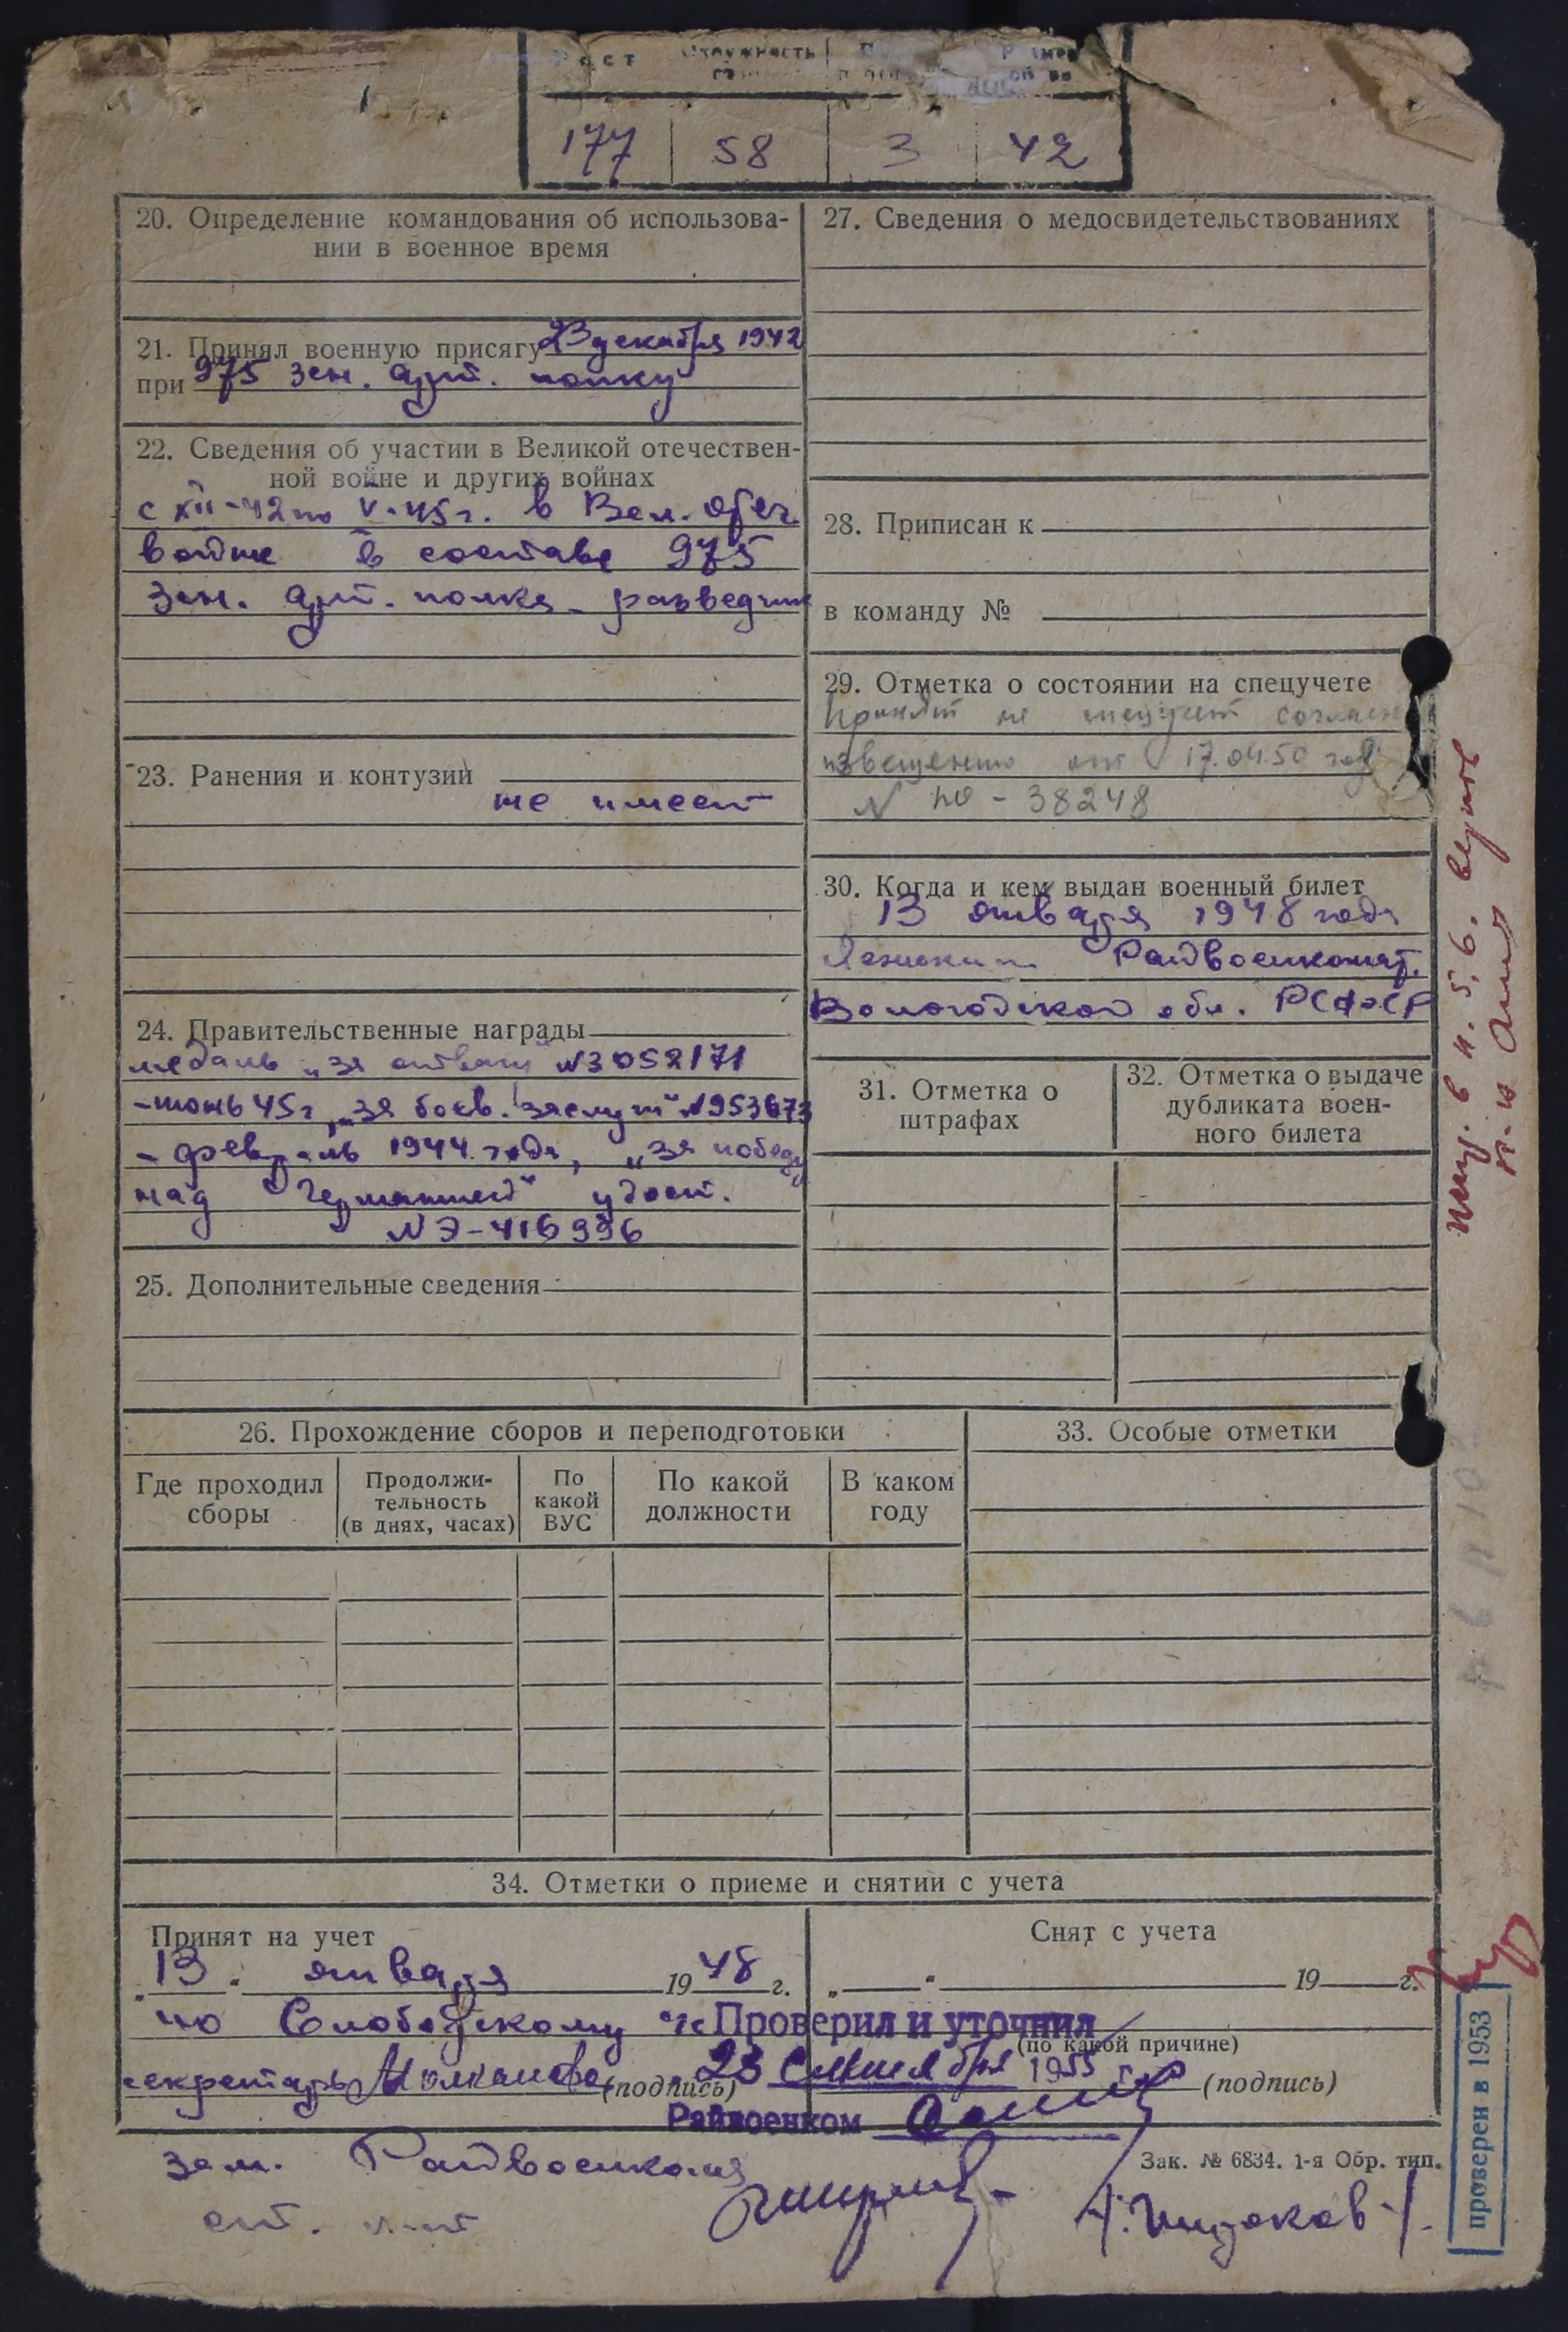 Рост Окружность Размер
177 58 3 42
20. Определение командования об использова-
нии в военное время
21. Принял военную присягу 23 декабря 1942
при 975 зен. арт. полку
22. Сведения об участии в Великой отечествен-
ной войне и других войнах
с XII-42 по V-45 г. в Вел. отеч.
войне в составе 975
зен. арт. полка - разведчик
23. Ранения и контузии
не имеет
24. Правительственные награды
медаль „за отвагу" №3052171
- июнь 45 г, „за боев. заслуги" №953673
- февраль 1944 года, „за победу
над Германией" удост.
№ Э-416996
25. Дополнительные сведения
26. Прохождение сборов и переподготовки
Где проходил
сборы
Продолжи-
тельность
(в днях, часах)
По
какой
ВУС
По какой
должности
В каком
году
27. Сведения о медосвидетельствованиях
28. Приписан к
в команду №
29. Отметка о состоянии на спецучете
Принят на спецучет согласно
извещению от 17.04.50 год
№ по - 38248
30. Когда и кем выдан военный билет
13 января 1948 года
Райвоенкомат.
Вологодской обл. РСФСР
31. Отметка о
штрафах
32. Отметка о выдаче
дубликата воен-
ного билета
33. Особые отметки
34. Отметки о приеме и снятии с учета
Принят на учет
„13" января 1948 г.
по Слободскому
секретарь (подпись)
Снят с учета
„ " 19 г.
(по какой причине)
(подпись)
Проверил и уточнил
23 Сентября 1955 г.
Райвоенком
зам. Райвоенкома
ст. л-нт
Зак. № 6834. 1-я Обр. тип.
проверен в 1953
в п. 5, 6. верить